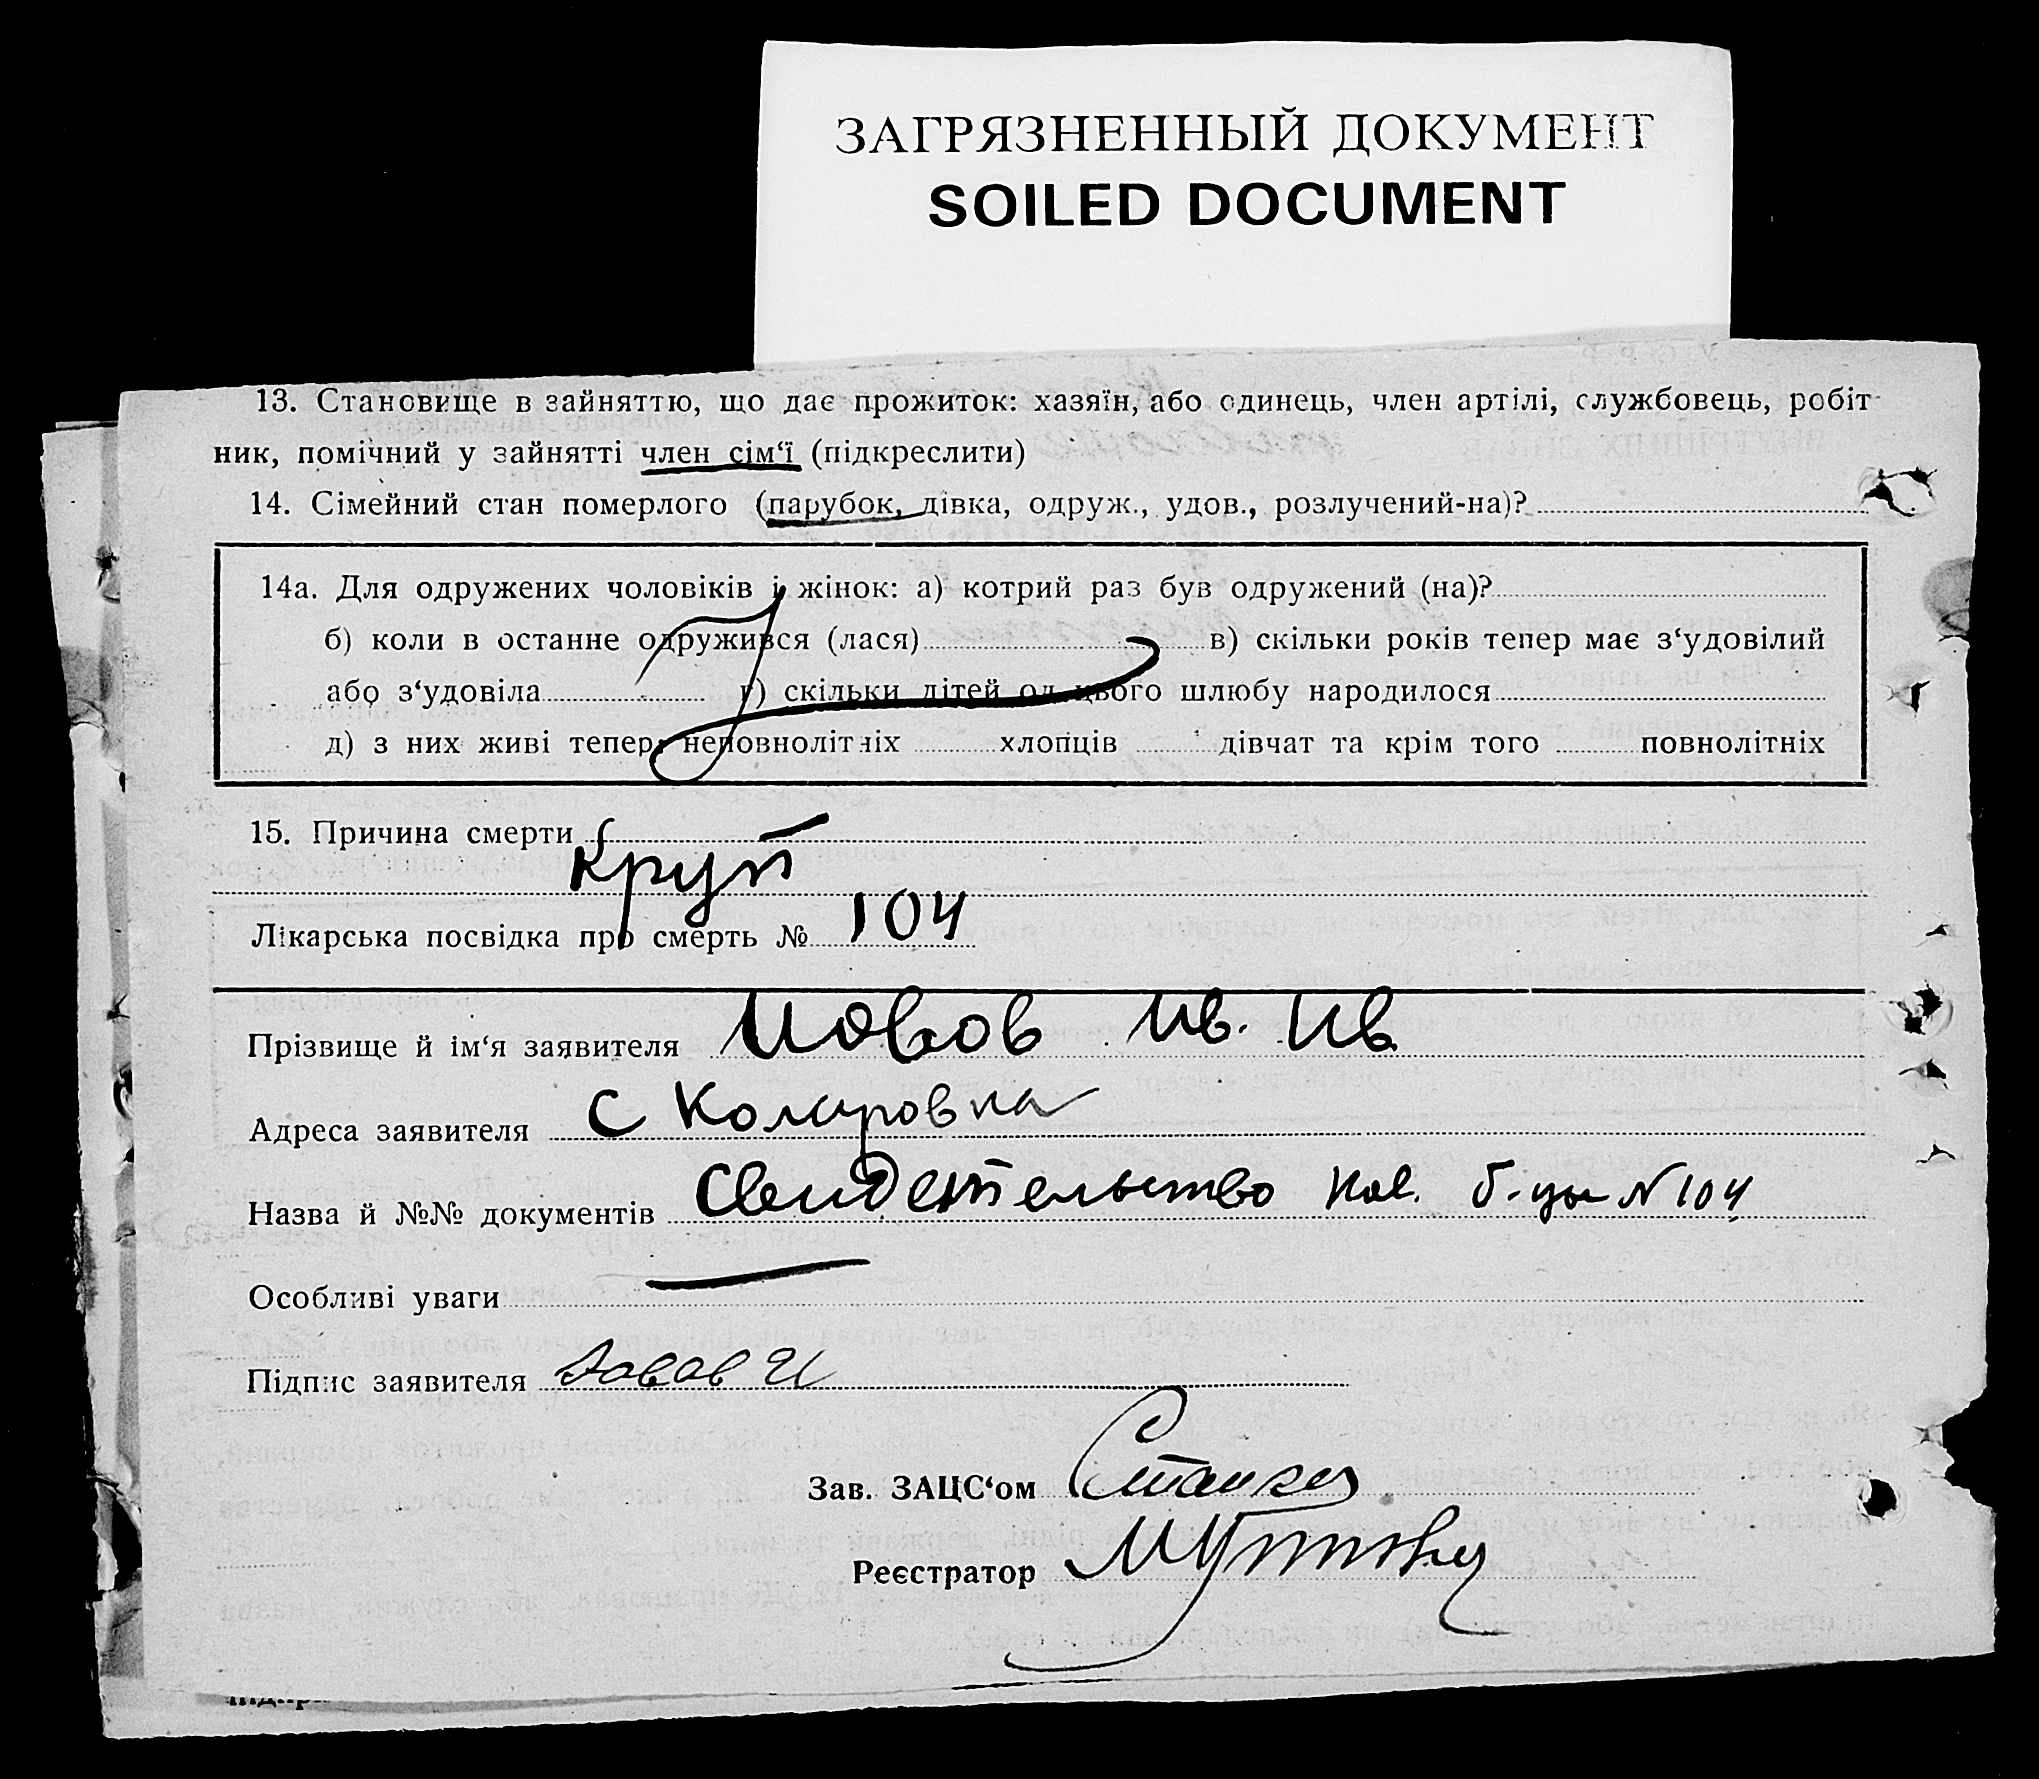 ЗАГРЯЗНЕННЫЙ ДОКУМЕНТ
SOILED DOCUMENT
13. Становище в зайняттю, що дає прожиток: хазяїн, або одинець, член артілі, службовець, робіт
ник, помічний у зайнятті член сім‘ї (підкреслити)
14. Сімейний стан померлого (парубок, дівка, одруж., удов., розлучений-на)?
14а. Для одружених чоловіків і жінок: а) котрий раз був одружений (на)?
б) коли в останне одружився (лася) в) скільки років тепер має з‘удовілий
або з‘удовіла г) скільки дітей од цього шлюбу народилося
д) з них живі тепер: неповнолітніх хлопців дівчат та крім того повнолітніх
15. Причина смерти
Круп
Лікарська посвідка про смерть № 104
Прізвище й ім‘я заявителя Иовов Ив. Ив.
Адреса заявителя с Комировка
Назва й №№ документів Свидетельство б-цы N 104
Особливі уваги —
Підпис заявителя
Зав. ЗАЦС‘ом
Реєстратор